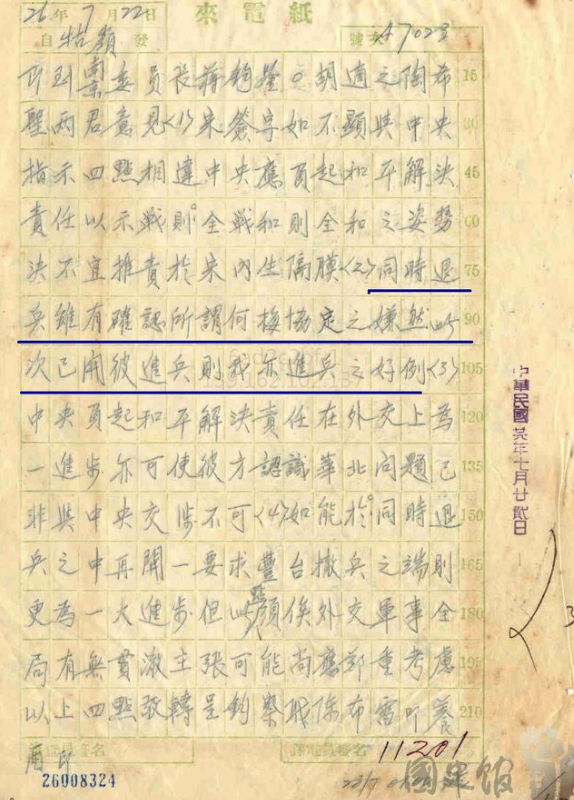 來電紙
26年7月22日
自牯嶺發
號次47023
委員長蔣鈞鑒。胡適之陶希
聖兩君意見(1)宋簽字如不顯與中央
指示四點相違中央應負起和平解決
責任以示戰則全戰和則全和之姿勢
決不宜推責於宋內生隔膜(2)同時退
兵雖有確認所謂何梅協定之嫌然此
次已開彼進兵則我亦進兵之好例(3)
中央負起和平解決責任在外交上為
一進步亦可使彼方認識華北問題已
非與中央交涉不可(4)如能於同時退
兵之中再開一要求豐台撤兵之端則
更為一大進步但此點須俟外交軍事全
局有無貫澈主張可能尚應鄭重考慮
以上四點敬轉呈鈞察職陳布雷叩養
酉印
15
30
45
60
75
90
105
120
135
150
165
180
195
210
11201
26008324
中華民國廿六年七月廿貳日
國史館